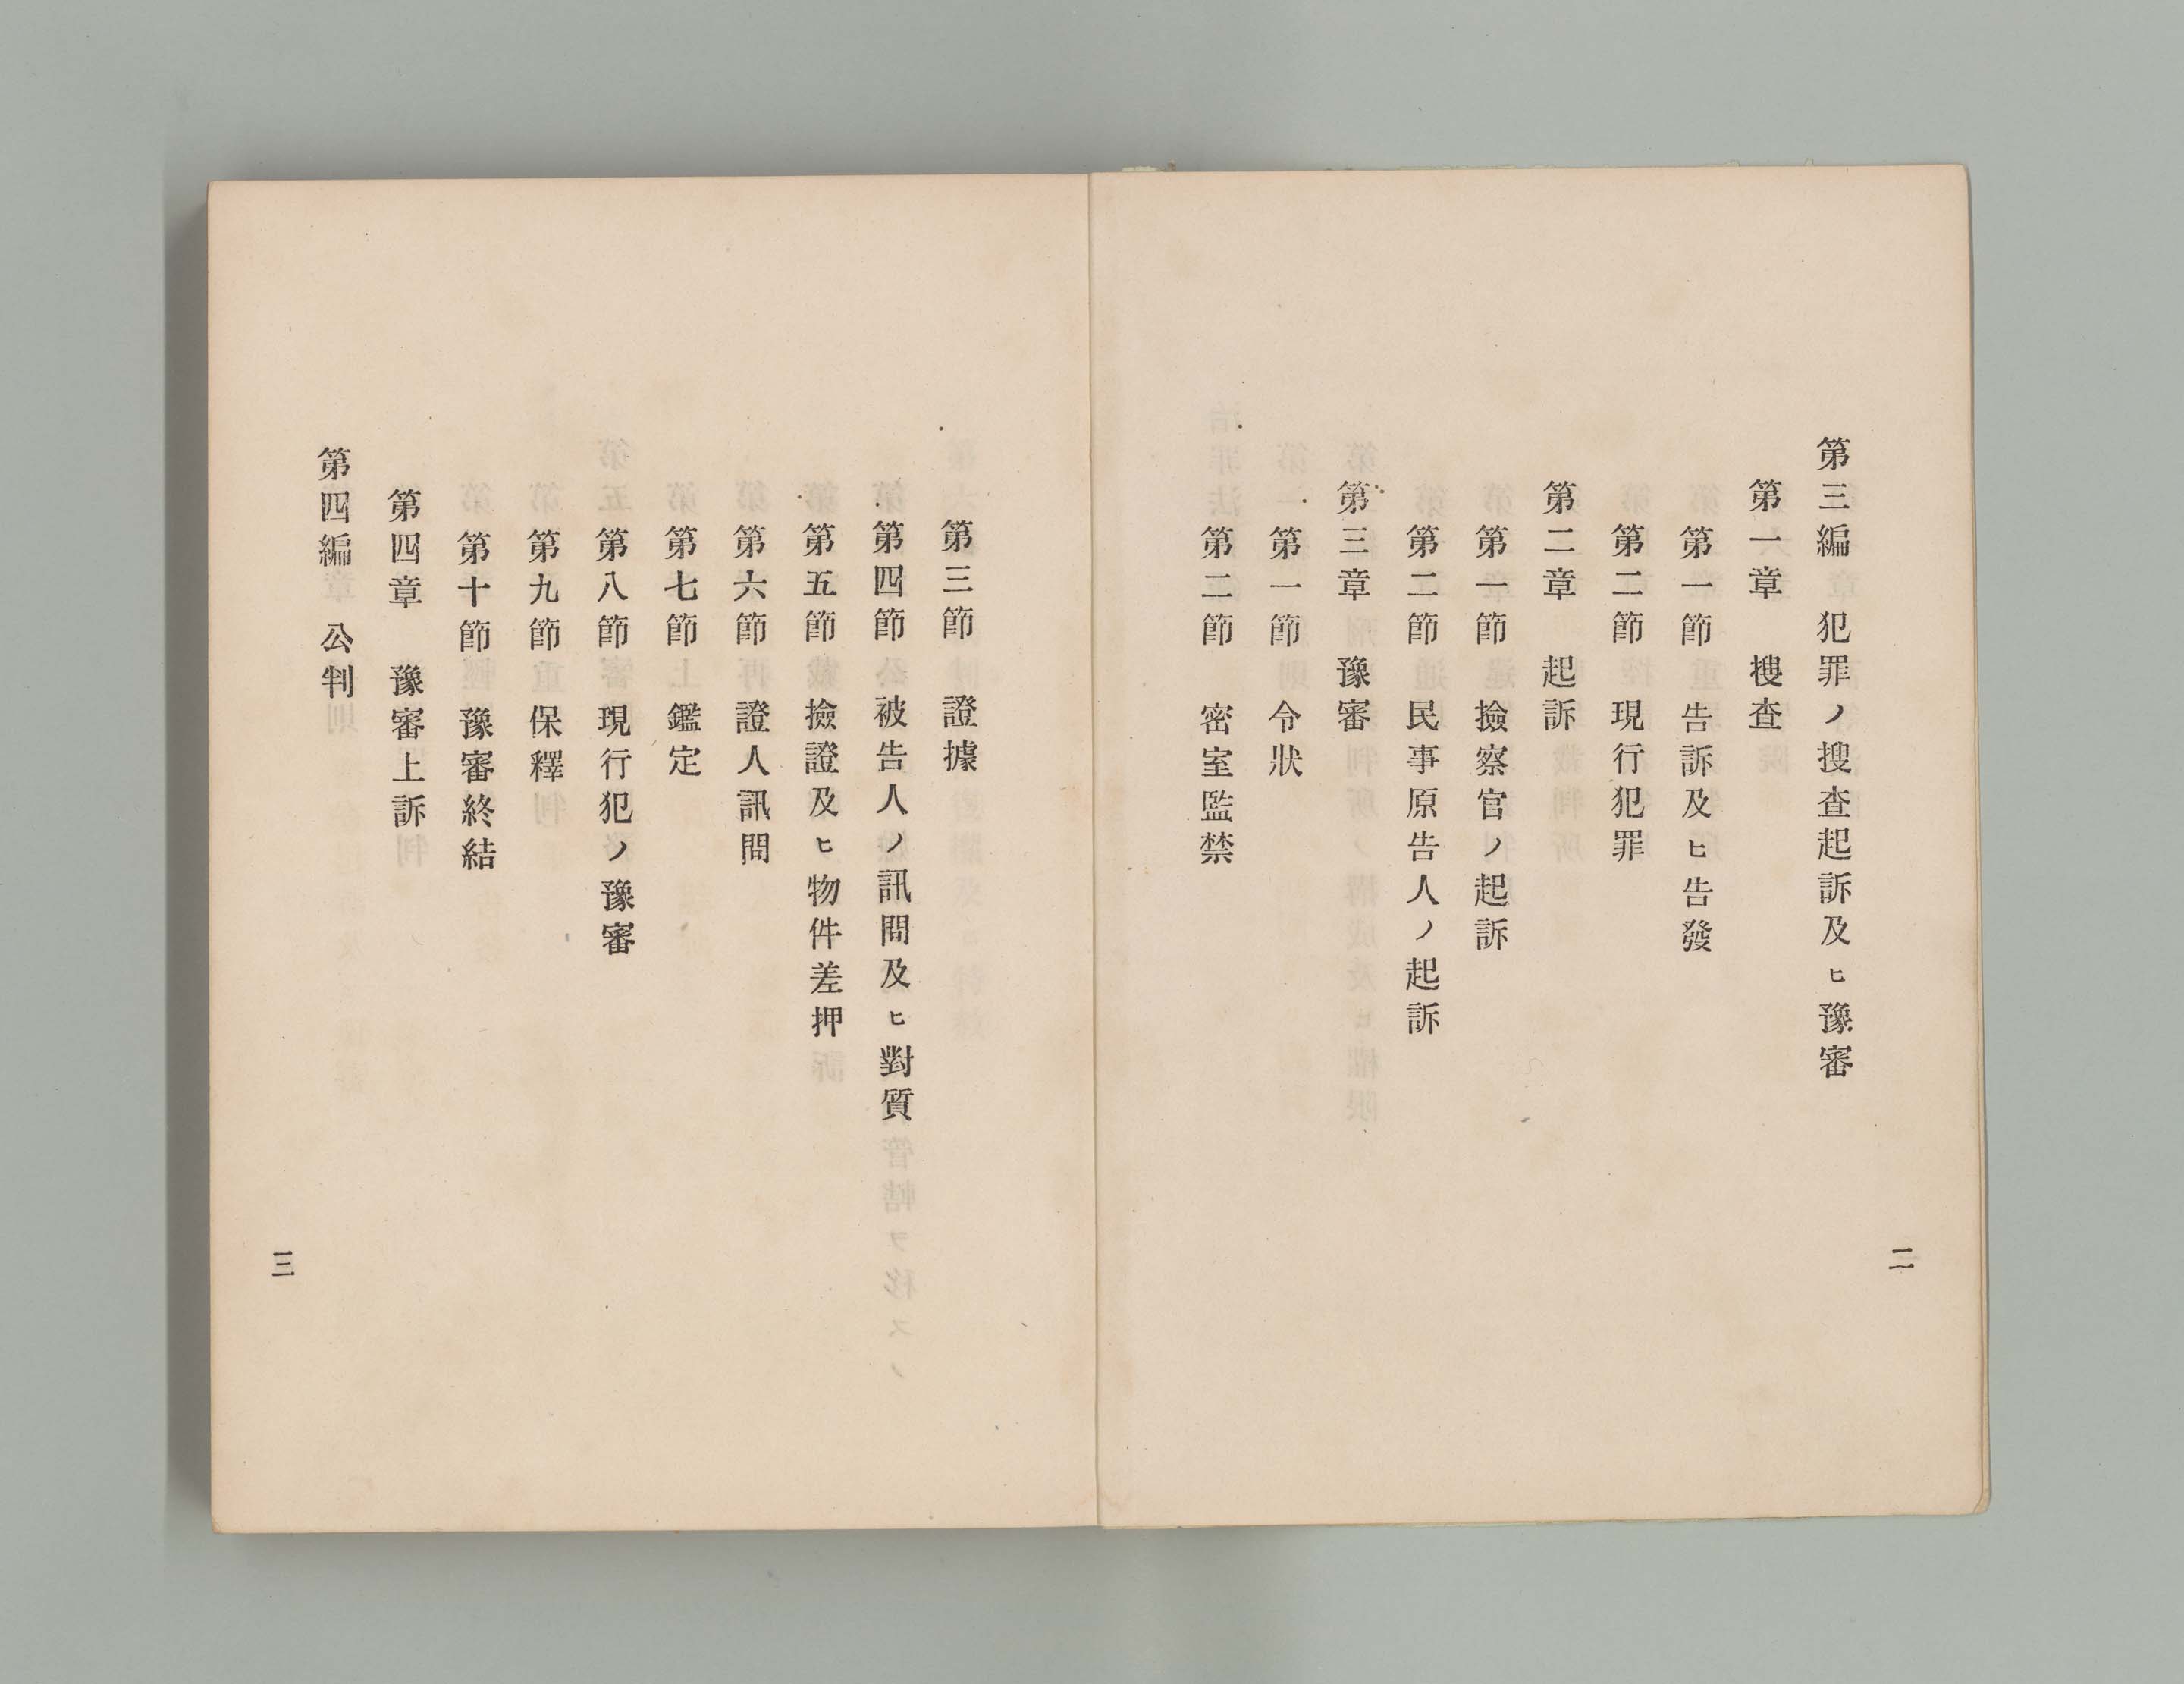 第三編 犯罪ノ搜査起訴及ヒ豫審
第一章 搜査
第一節 告訴及ヒ告發
第二節 現行犯罪
第二章 起訴
第一節 撿察官ノ起訴
第二節 民事原告人ノ起訴
第三章 豫審
第一節 令狀
第二節 密室監禁
二
第三節 證據
第四節 被告人ノ訊問及ヒ對質
第五節 撿證及ヒ物件差押
第六節 證人訊問
第七節 鑑定
第八節 現行犯ノ豫審
第九節 保釋
第十節 豫審終結
第四章 豫審上訴
第四編 公判
三